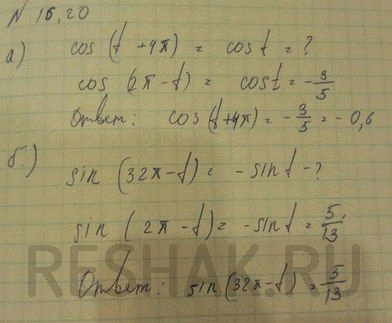 N 15,20
а) cos (t + 4π) = cos t = ?
cos (2π - t) = cos t = - 3/5
Ответ: cos (t + 4π) = - 3/5 = - 0,6
б.) sin (32π - t) = - sin t - ?
sin (2π - t) = - sin t = 5/13,
Ответ: sin (32π - t) = 5/13
RESHAK.RU